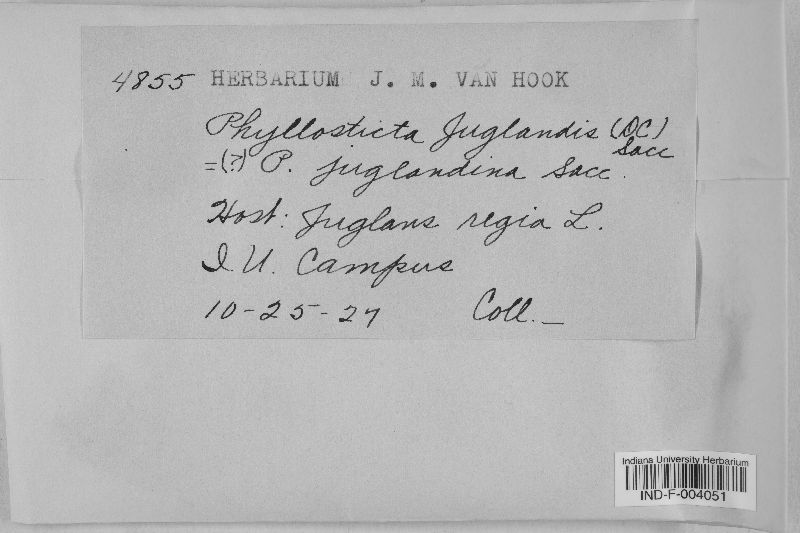 4855 HERBARIUM J. M. VAN HOOK
Phyllosticta Juglandis (DC) Sacc
=(?) P. juglandina Sacc.
Host: Juglans regia L.
I.U. Campus
10-25-27 Coll. —
Indiana University Herbarium
IND-F-004051